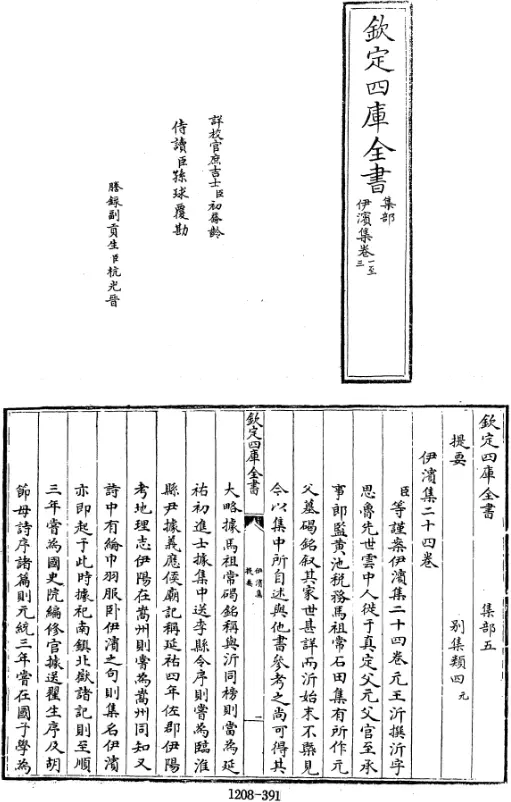 欽定四庫全書
集部
伊濱集卷一至三
詳校官庶吉士臣初彭齡
侍讀臣孫球覆勘
謄錄副貢生臣杭光晉
欽定四庫全書
集部五
提要
別集類四元
伊濱集二十四卷
臣等謹案伊濱集二十四卷元王沂撰沂字
思魯先世雲中人徙于真定父元父官至承
事郎監黄池稅務馬祖常石田集有所作元
父墓碣銘叙其家世甚詳而沂始末不槩見
今以集中所自述與他書參考之尚可得其
欽定四庫全書
伊濱集
提要
一
大略據馬祖常碣銘稱與沂同榜則當為延
祐初進士據集中送李縣令序則嘗為臨淮
縣尹據義應侯廟記稱延祐四年佐郡伊陽
考地理志伊陽在嵩州則嘗為嵩州同知又
詩中有綸巾羽服卧伊濱之句則集名伊濱
亦即起于此時據祀南鎮北嶽諸記則至順
三年嘗為國史院編修官據送瞿生序及胡
節母詩序諸篇則元統三年嘗在國子學為
1208-391